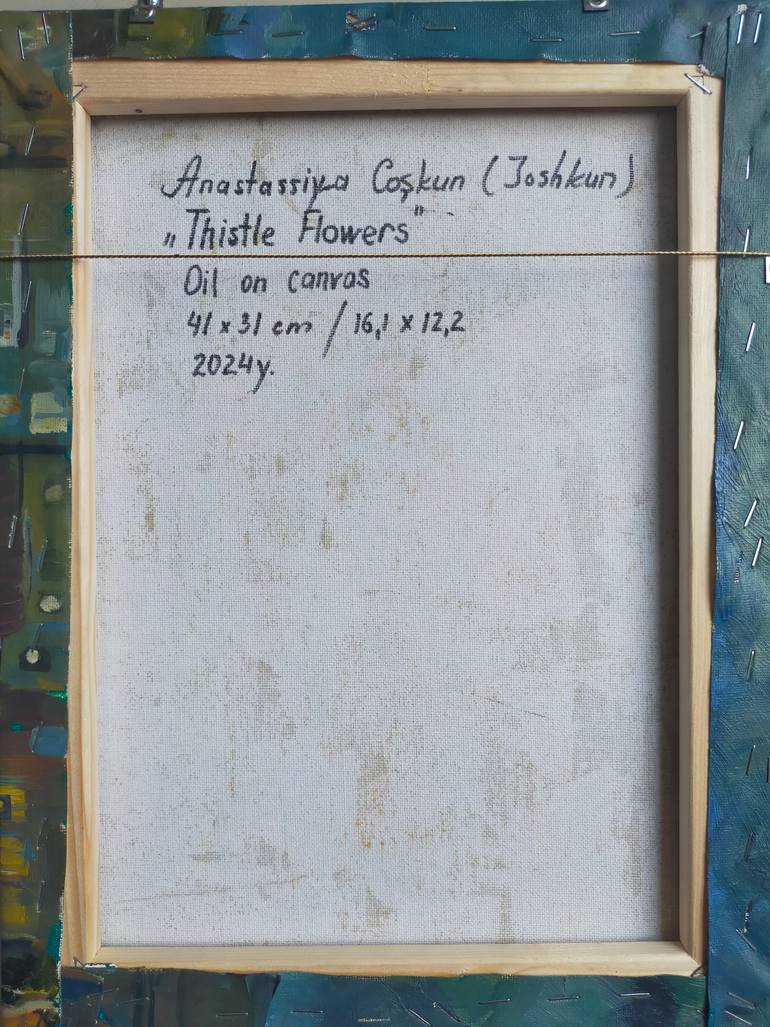 Anastassiya Coşkun (Joshkun)
„Thistle Flowers"
Oil on canvas
41 x 31 cm / 16,1 x 12,2
2024y.